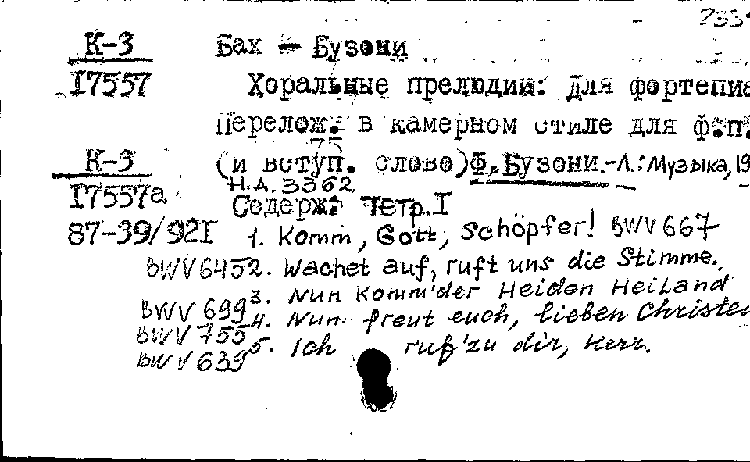 К-3 Бах - Бузони
I7557 Хоральные прелюдии: Для фортепиа
Перелож. в камерном стиле для ф.п.
К-3 (и вступ. слово) Ф. Бузони.-Л.: Музыка, 19
I7557а Н.Д. 3362
Содерж: Тетр. I
87-39/92I 1. Komm, Gott, schöpfer! BWV 667
BWV 645 2. Wachet auf, ruft uns die Stimme.,
3. Nun Komm' der Heiden Heiland
BWV 699
4. Nun freut euch, lieben Christen
BWV 755
5. Ich ruf' zu dir, Herr.
BWV 639